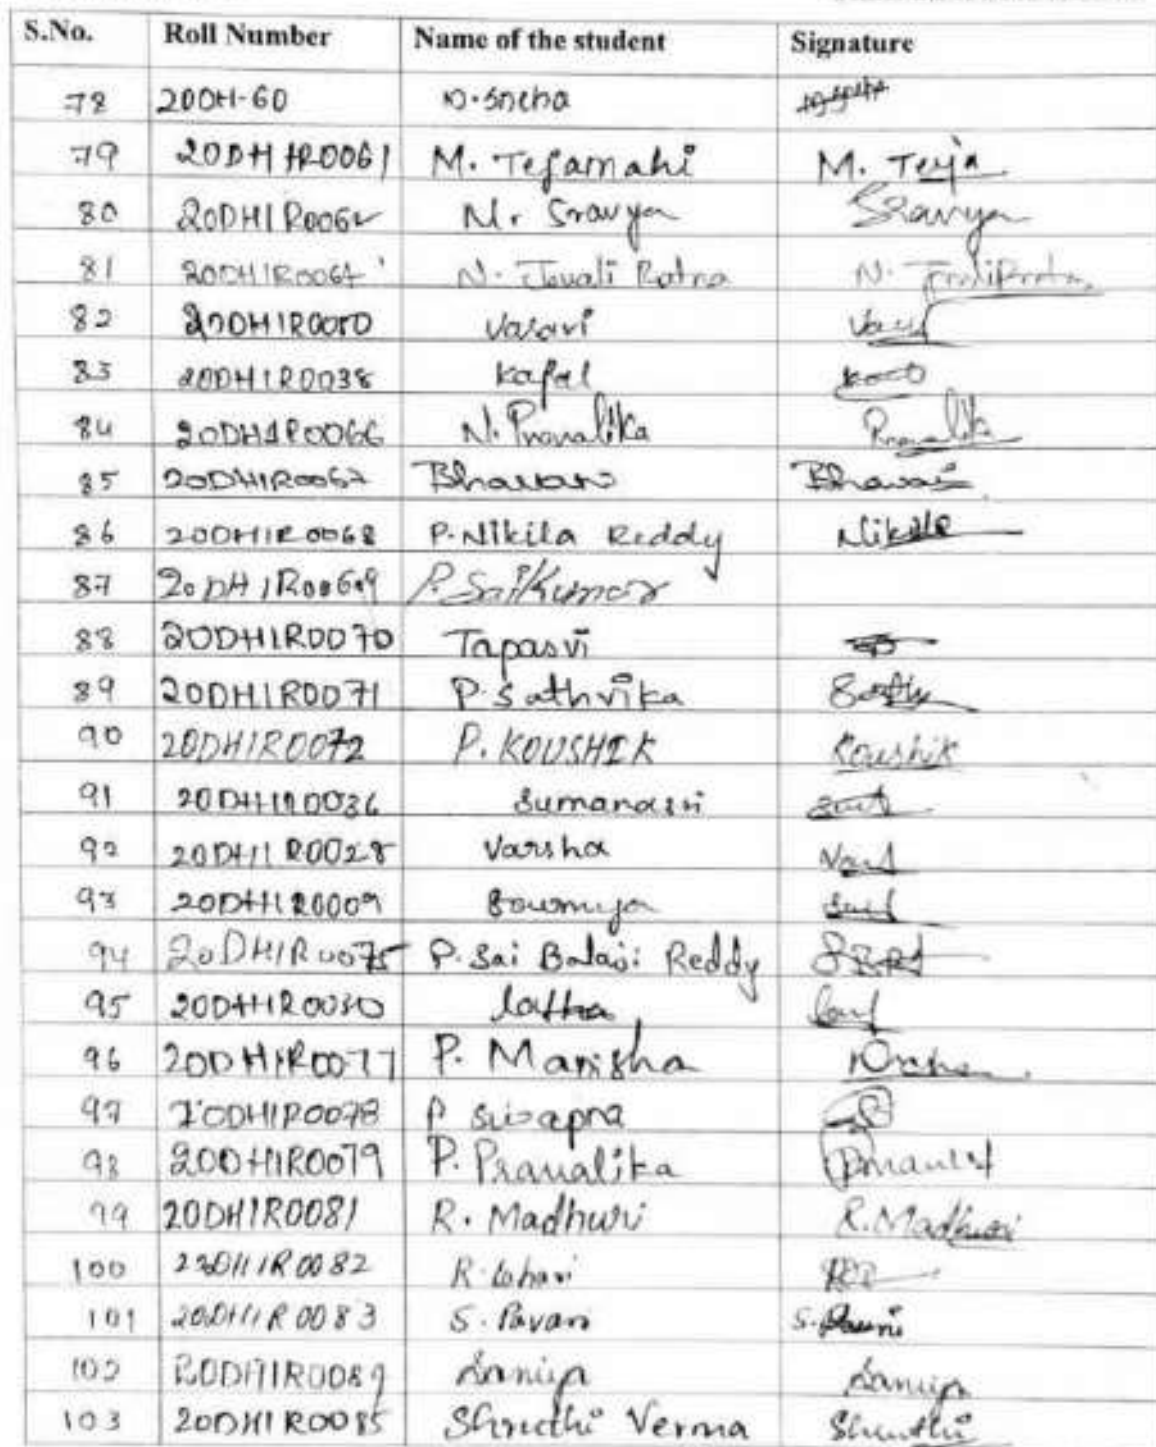 S.No. Roll Number Name of the student Signature
78 20DH-60 D. Sneha
79 20DH1R0061 M. Tejamahi M. Teja
80 20DH1R0062 N. Sravya Sravya
81 20DH1R0064 N. Javali Ratna N.
82 20DH1R0050 Vasavi
83 20DH1R0038 Kajal
84 20DH1R0066 N. Pranalika Pranalika
85 20DH1R0067 Bhavani Bhavani
86 20DH1R0068 P. Nikila Reddy Nikila
87 20DH1R00609 P. SaiKumar
88 20DH1R0070 Tapasvi
89 20DH1R0071 P. Sathvika
90 20DH1R0072 P. KOUSHIK Koushik
91 20DH1R0036 Sumanasri
92 20DH1R0028 Varsha
93 20DH1R0009 Sowmya
94 20DH1R0075 P. Sai Balaji Reddy
95 20DH1R0030 latha
96 20DH1R0077 P. Manisha
97 20DH1R0078 P Swapna
98 20DH1R0079 P. Pravalika
99 20DH1R0081 R. Madhuri R. Madhuri
100 20DH1R0082 R. Lahari
101 20DH1R0083 S. Pavani S. Pavani
102 20DH1R0089 Saniya Saniya
103 20DH1R0085 Shruthi Verma Shruthi